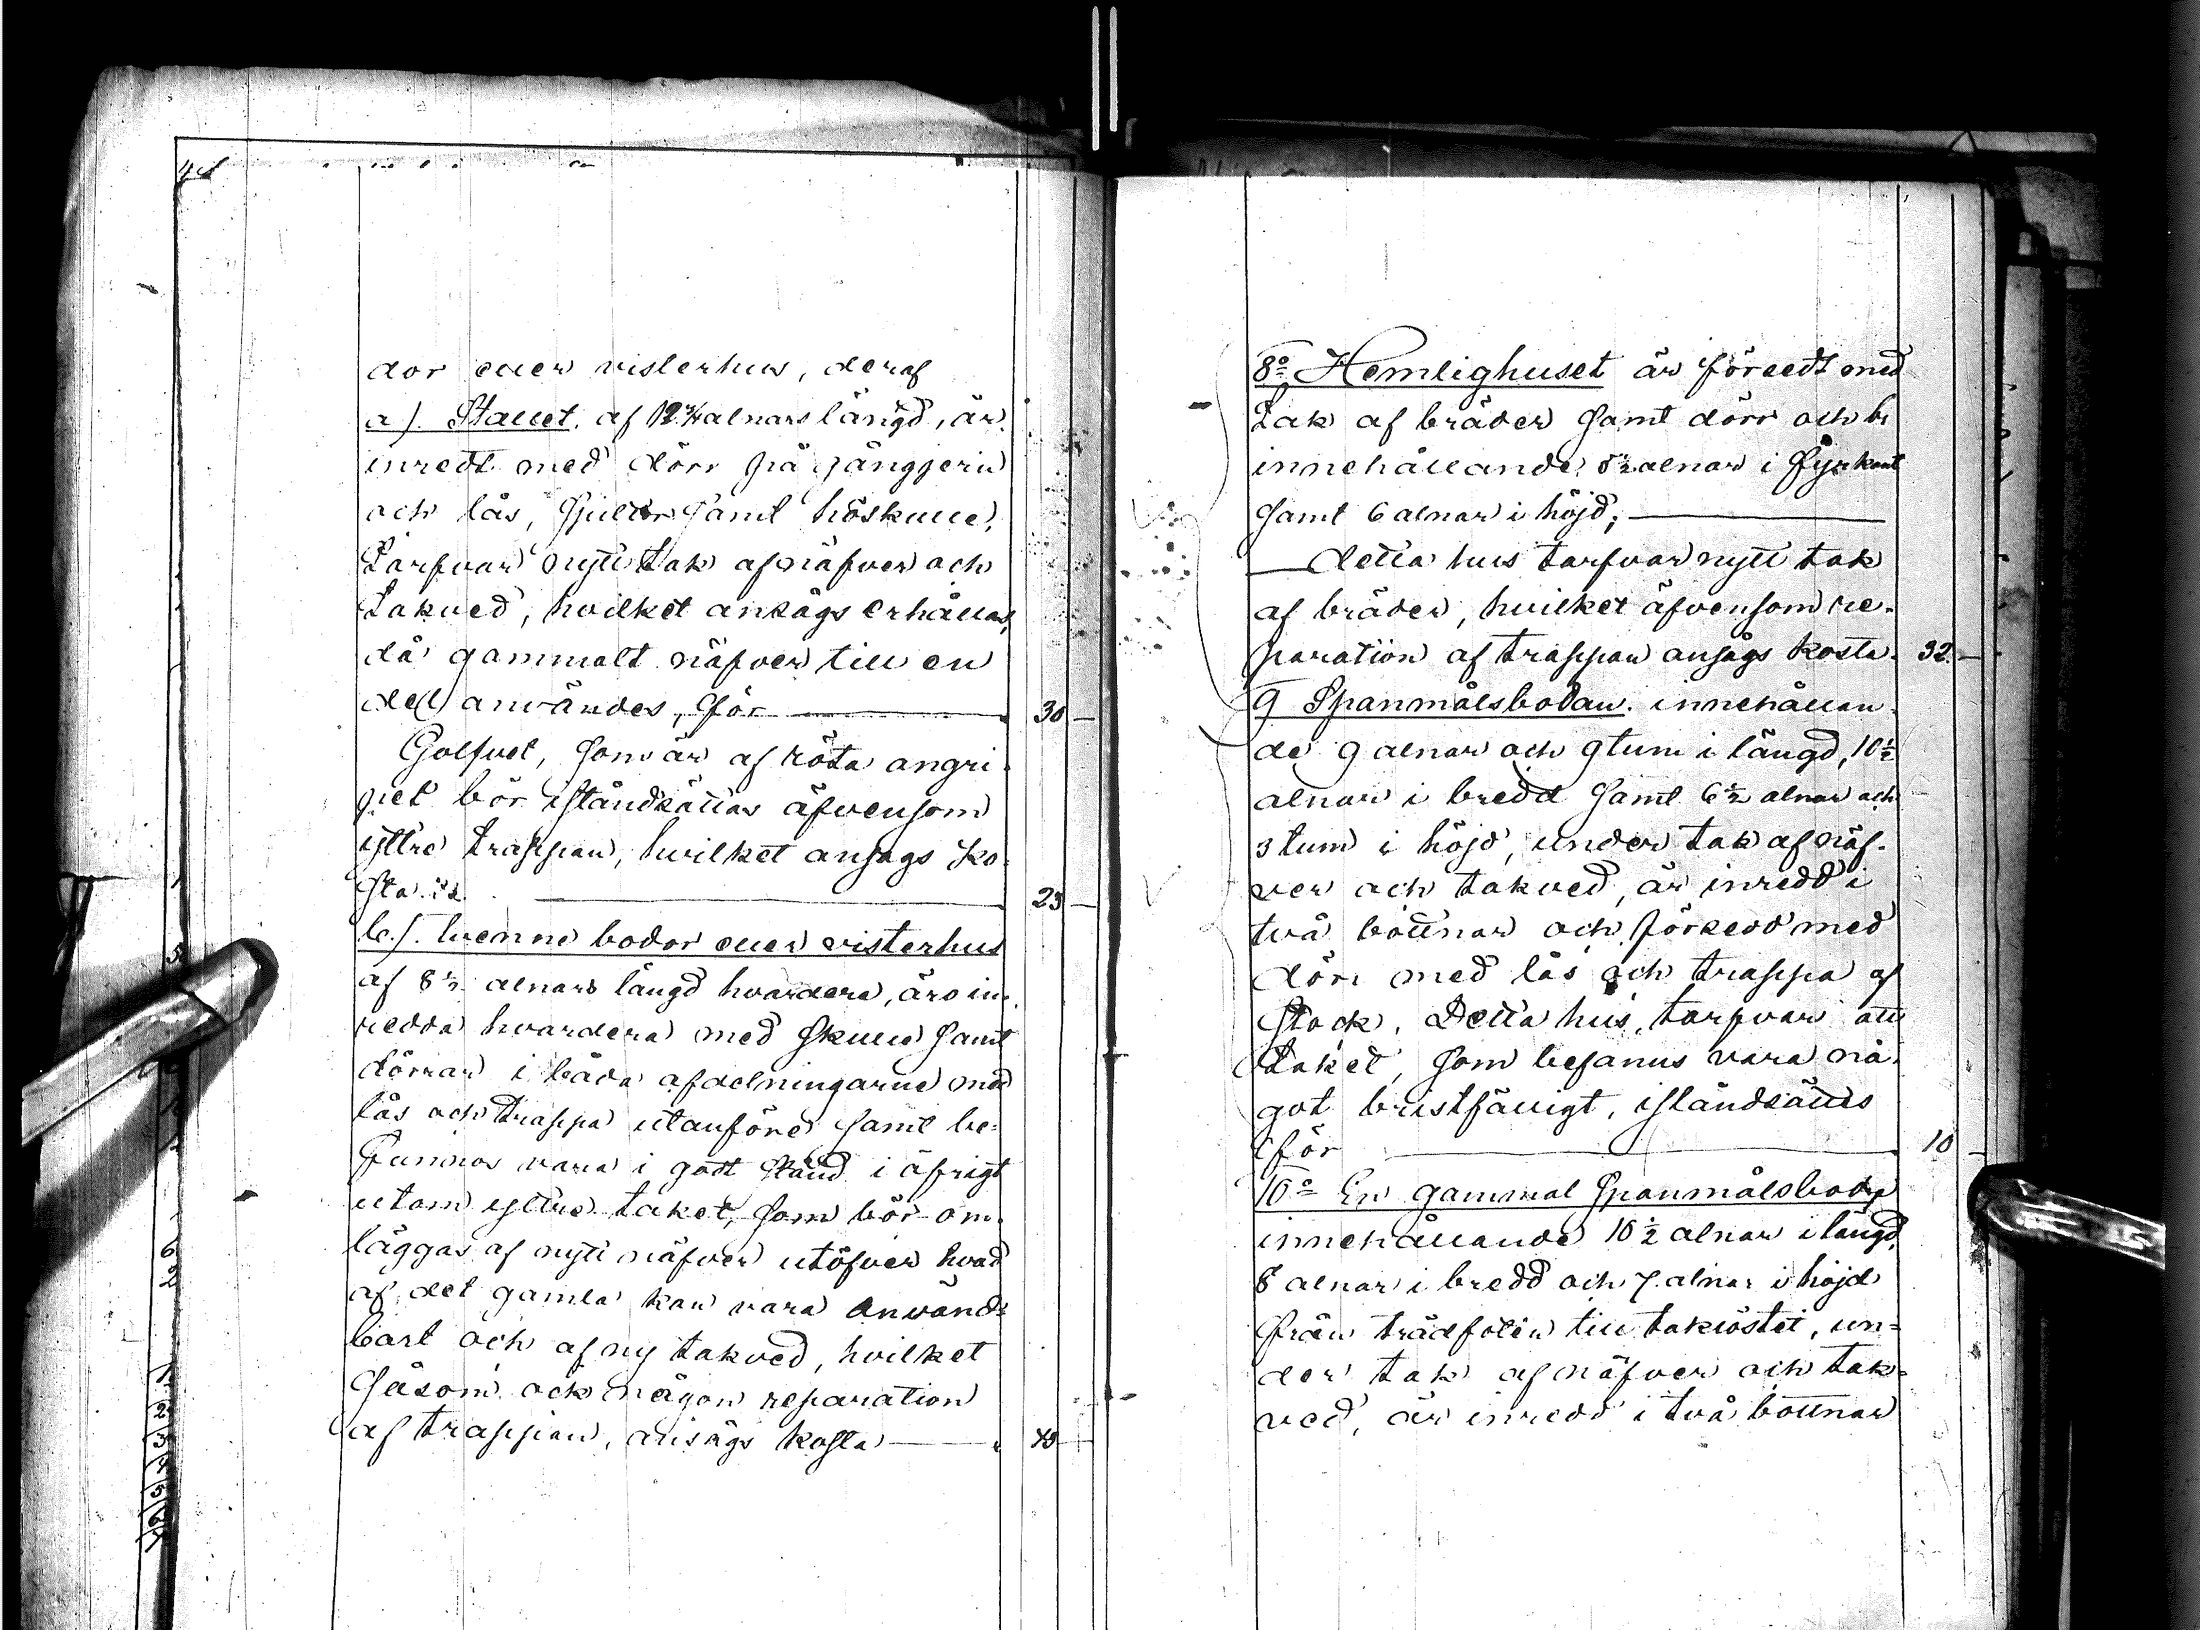 dor eller visterhus, deraf
a). Stallet. af 12 3/4 alnars längd, är
inredt med dörr på gångjern
och lås, spiltor samt höskulle.
Tarfvar nytt tak af näfver och
takved, hvilket ansågs erhållas,
då gammalt näfver till en
del användes, för 30 —
Golfvet, som är af röta angri-
pet bör iståndsättas äfvensom
yttre trappan, hvilket ansågs ko-
sta. 25 —
b). tvenne bodor eller visterhus
af 8 1/2 alnars längd hvardera, äro in-
redda hvardera med skulle samt
dörrar i båda afdelningarne med
lås och trappa utanföre samt be-
funnos vara i godt stånd i öfrigt
utom yttre taket, som bör om-
läggas af nytt näfver utöfver hvad
af det gamla kan vara använd-
bart och af ny takved, hvilket
såsom ock någon reparation
af trappan, ansågs kosta 40 —
8o Hemlighuset är försedt med
tak af bräder samt dörr och
innehållande alnar i fyrkant
samt 6 alnar i höjd;
detta hus tarfvar nytt tak
af bräder, hvilket äfvensom re-
paration af trappan ansågs kosta. 32 —
9 Spanmålsbodan. innehållan-
de 9 alnar och 9 tum i längd, 10 1/2
alnar i bredd samt 6 1/2 alnar och
3 tum i höjd, under tak af näf-
ver och takved, är inredd i
två bottnar och försedd med
dörr med lås och trappa af
stock. Detta hus, tarfvar att
taket, som befanns vara nå-
got bristfälligt, iståndsättes
för 10 —
10o En gammal spanmålsboda
innehållande 10 1/2 alnar i längd,
8 alnar i bredd och 7 alnar i höjd
från trädfoten till takröstet, un-
der tak af näfver och tak-
ved, är inredd i två bottnar